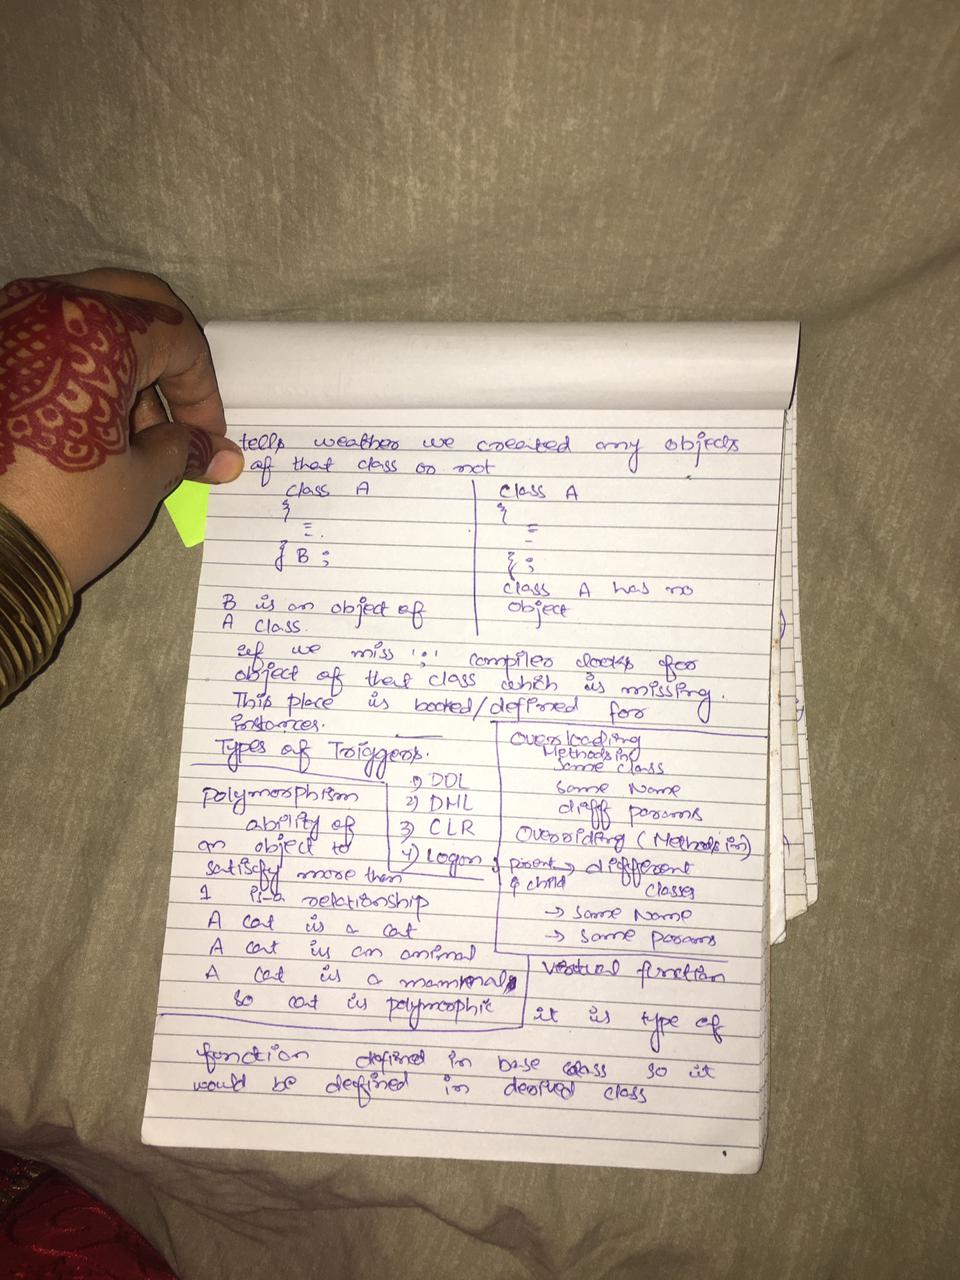 tells weather we created any objects
of that class or not
class A
{
=.
} B ;
B is an object of
A class.
class A
{
=
-
} ;
class A has no
object
if we miss ';' compiler looks for
object of that class which is missing.
This place is booked/defined for
instances.
Types of Triggers.
1) DDL
2) DML
3) CLR
4) Logon
polymorphism
ability of
an object to
satisfy more than
1 is-a relationship
A cat is a cat
A cat is an animal
A cat is a mammal
so cat is polymorphic
Overloading
Methods in
same class
same Name
diff params
Overriding (Methods in)
parent → different
& child classes
→ same Name
→ same params
Vertual function
it is type of
function defined in base class so it
would be defined in derived class